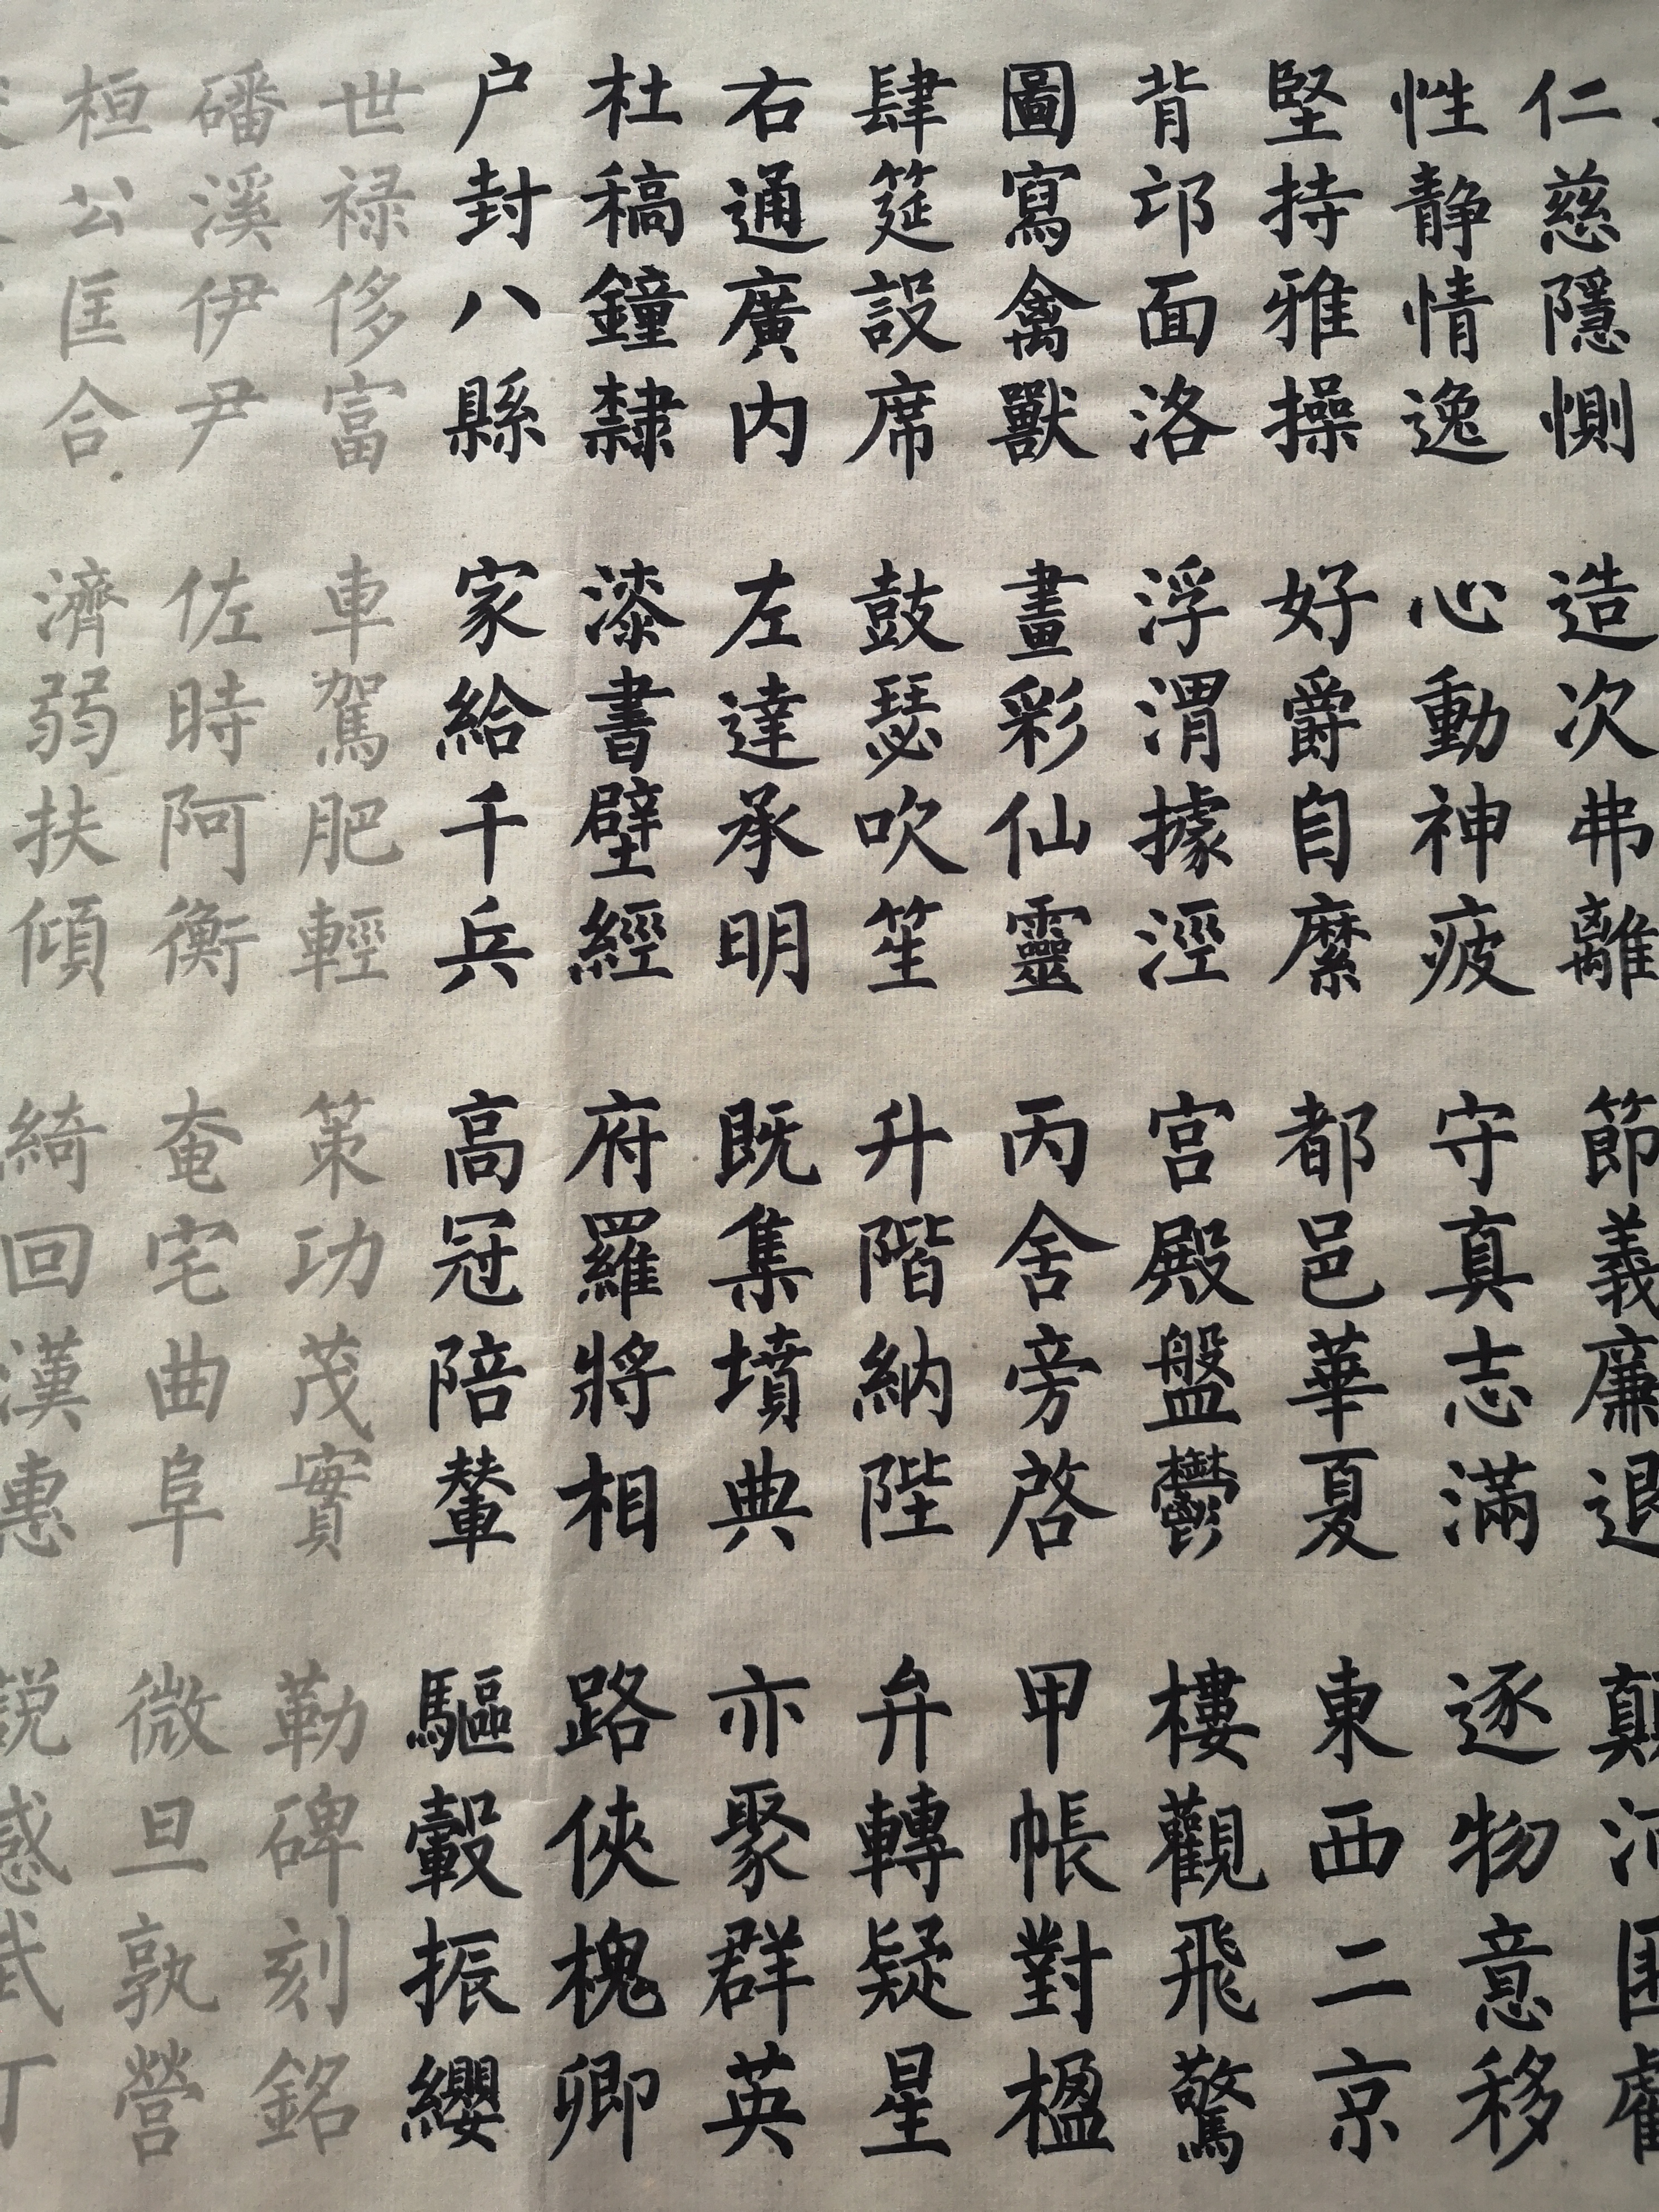 仁慈隱惻 造次弗離 節義廉退 顛
性静情逸 心動神疲 守真志滿 逐物意移
堅持雅操 好爵自縻 都邑華夏 東西二京
背邙面洛 浮渭據涇 宫殿盤鬱 樓觀飛驚
圖寫禽獸 畫彩仙靈 丙舍旁啓 甲帳對楹
肆筵設席 鼓瑟吹笙 升階納陛 弁轉疑星
右通廣内 左達承明 既集墳典 亦聚群英
杜稿鐘隸 漆書壁經 府羅將相 路俠槐卿
户封八縣 家給千兵 高冠陪輦 驅轂振纓
世禄侈富 車駕肥輕 策功茂實 勒碑刻銘
磻溪伊尹 佐時阿衡 奄宅曲阜 微旦孰營
桓公匡合 濟弱扶傾 綺回漢惠 説感武丁